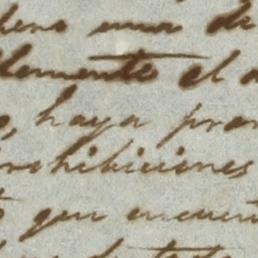 pero una de
lemente el a
o, haya pron
rohibiciones
ó que encuent